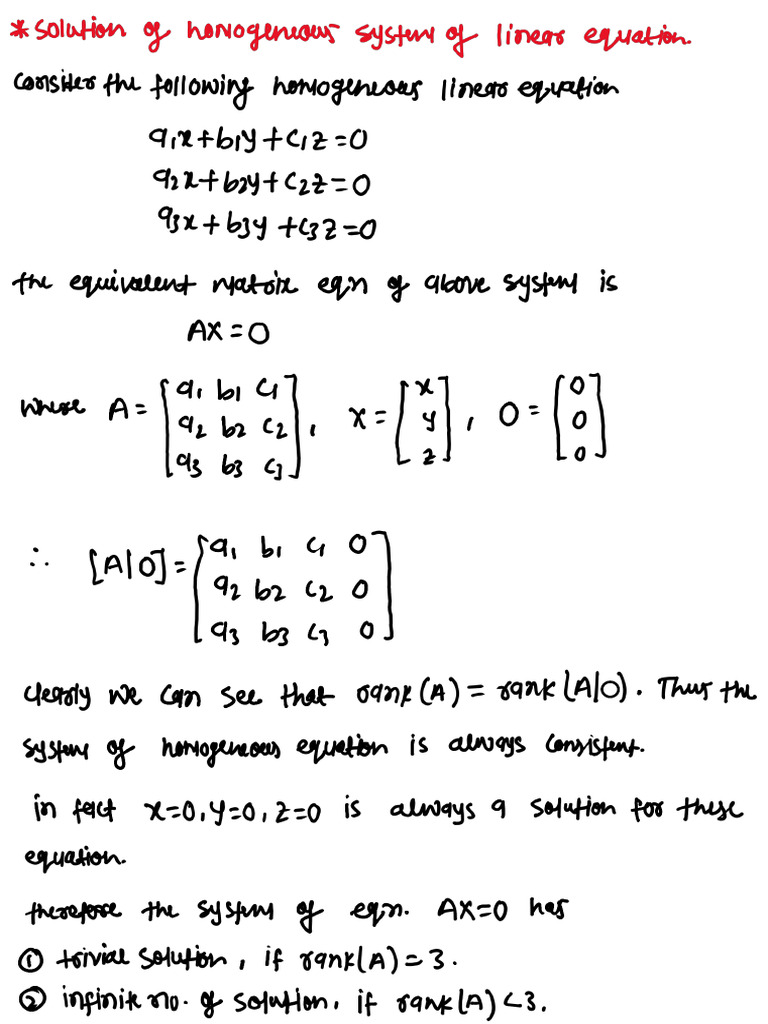 * Solution of homogeneous system of linear equation.
Consider the following homogeneous linear equation
a1x+b1y+c1z=0
a2x+b2y+c2z=0
a3x+b3y+c3z=0
the equivalent matrix eqn of above system is
AX=0
where A= [a1 b1 c1 a2 b2 c2 a3 b3 c3], X= [x y z], 0= [0 0 0]
∴ [A|0]= [a1 b1 c1 0 a2 b2 c2 0 a3 b3 c3 0]
clearly we can see that rank(A) = rank(A|0). Thus the
system of homogeneous equation is always consistent.
in fact x=0, y=0, z=0 is always a solution for these
equation.
therefore the system of eqn. AX=0 has
① trivial solution, if rank(A)=3.
② infinite no. of solution, if rank(A)<3.